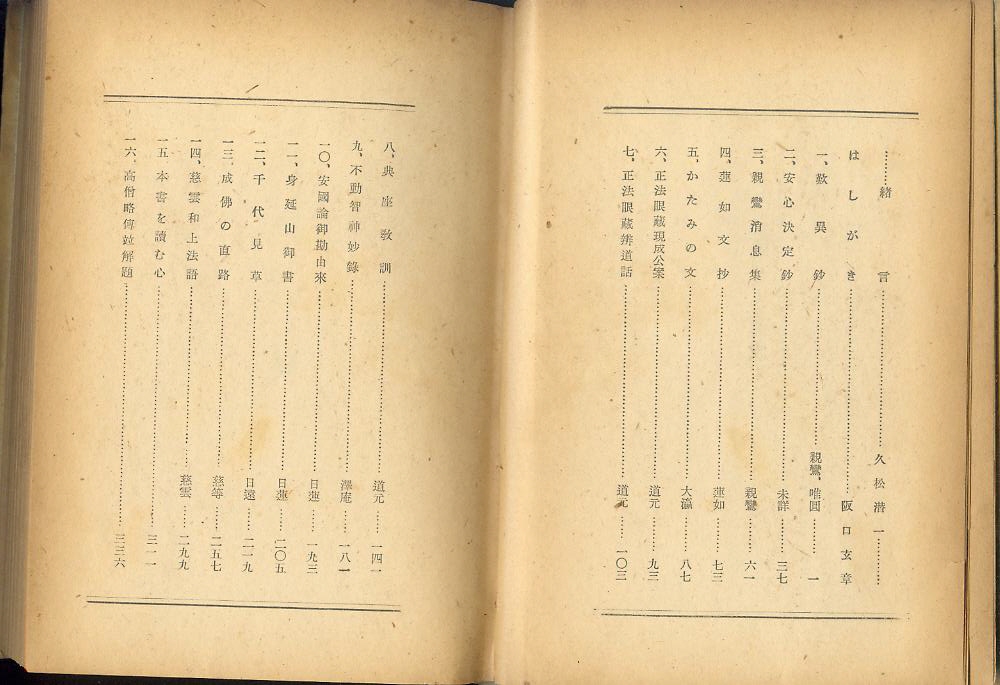 緒言……久松潜一……
はしがき……阪口玄章
一、歎異鈔……親鸞、唯圓……一
二、安心決定鈔……未詳……三七
三、親鸞消息集……親鸞……六一
四、蓮如文抄……蓮如……七三
五、かたみの文……大瀛……八七
六、正法眼藏現成公案……道元……九三
七、正法眼藏辨道話……道元……一〇三
八、典座敎訓……道元……一四一
九、不動智神妙錄……澤庵……一八一
一〇、安國論御勘由來……日蓮……一九三
一一、身延山御書……日蓮……二〇五
一二、千代見草……日遠……二一九
一三、成佛の直路……慈等……二五七
一四、慈雲和上法語……慈雲……二九九
一五、本書を讀む心……三一一
一六、高僧略傳竝解題……三三六